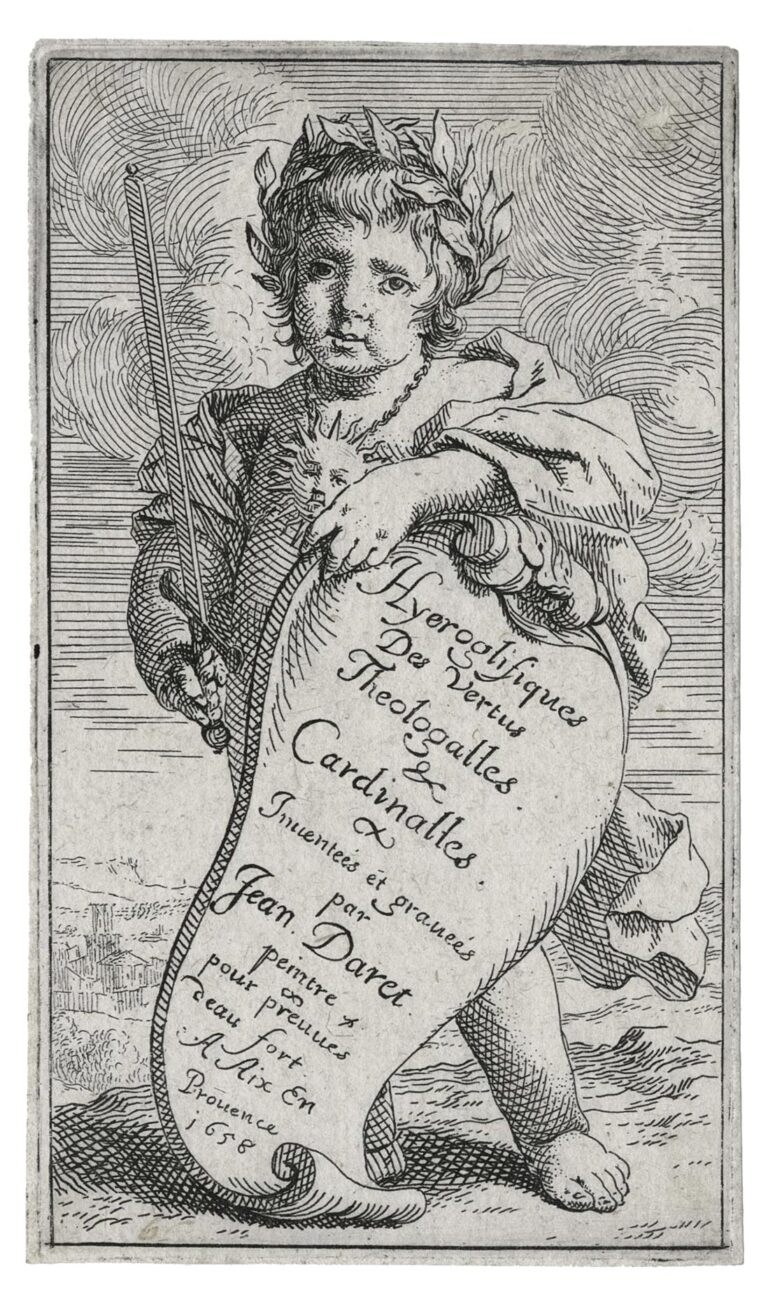 Hyeroglifiques
Des Vertus
Theologalles.
&
Cardinalles.
Inuenteés ét graueés
par
Jean Daret
peintre
pour preuues
deau fort
A Aix En
Prouence
1658